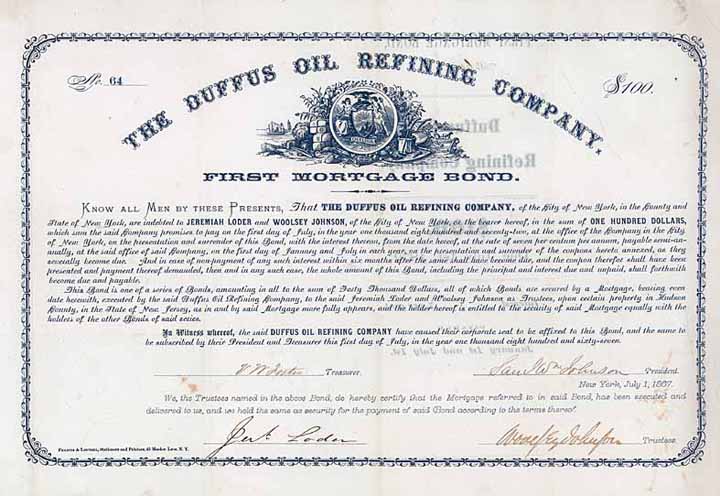 No. 64
$100.
THE DUFFUS OIL REFINING COMPANY.
FIRST MORTGAGE BOND.
KNOW ALL MEN BY THESE PRESENTS, That THE DUFFUS OIL REFINING COMPANY, of the City of New York, in the County and
State of New York, are indebted to JEREMIAH LODER and WOOLSEY JOHNSON, of the City of New York, or the bearer hereof, in the sum of ONE HUNDRED DOLLARS,
which sum the said Company promises to pay on the first day of July, in the year one thousand eight hundred and seventy-two, at the office of the Company in the City
of New York, on the presentation and surrender of this Bond, with the interest thereon, from the date hereof, at the rate of seven per centum per annum, payable semi-an-
nually, at the said office of said Company, on the first day of January and July in each year, on the presentation and surrender of the coupons hereto annexed, as they
severally become due. And in case of non-payment of any such interest within six months after the same shall have become due, and the coupon therefor shall have been
presented and payment thereof demanded, then and in any such case, the whole amount of this Bond, including the principal and interest due and unpaid, shall forthwith
become due and payable.
This Bond is one of a series of Bonds, amounting in all to the sum of Forty Thousand Dollars, all of which Bonds are secured by a Mortgage, bearing even
date herewith, executed by the said Duffus Oil Refining Company, to the said Jeremiah Loder and Woolsey Johnson as Trustees, upon certain property in Hudson
County, in the State of New Jersey, as in and by said Mortgage more fully appears, and the holder hereof is entitled to the security of said Mortgage equally with the
holders of the other Bonds of said series.
In Witness whereof, the said DUFFUS OIL REFINING COMPANY have caused their corporate seal to be affixed to this Bond, and the same to
be subscribed by their President and Treasurer this first day of July, in the year one thousand eight hundred and sixty-seven.
Treasurer. Saml Wm Johnson President.
New York, July 1, 1867.
We, the Trustees named in the above Bond, do hereby certify that the Mortgage referred to in said Bond, has been executed and
delivered to us, and we hold the same as security for the payment of said Bond according to the terms thereof.
Jer. Loder Woolsey Johnson Trustees.
Stationers and Printers, 45 Maiden Lane, N. Y.
Duffus
Refining Company
FIRST MORTGAGE BOND,
January 1st and July 1st.